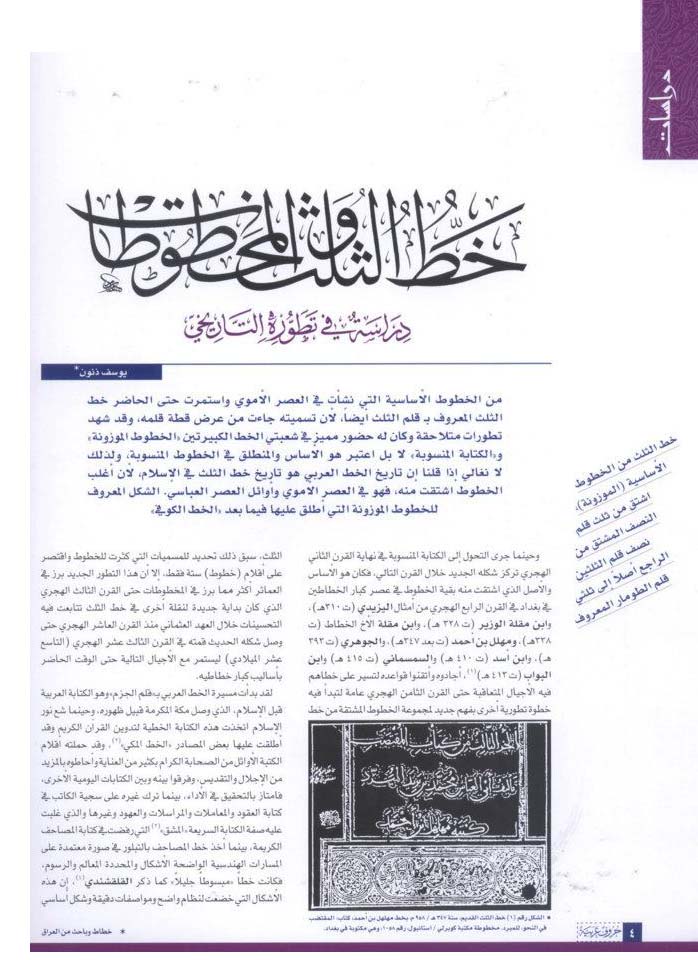 دراسات
خَطُّ الثُلث والمخطوطات
دِرَاسَةٌ في تَطَوُّرِهِ التَّارِيخيّ
يوسف ذنون*
من الخطوط الأساسية التي نشأت في العصر الأموي واستمرت حتى الحاضر خط
الثلث المعروف بـ قلم الثلث أيضاً، لأن تسميته جاءت من عرض قطة قلمه، وقد شهد
تطورات متلاحقة وكان له حضور مميز في شعبتي الخط الكبيرتين «الخطوط الموزونة»
و«الكتابة المنسوبة» لا بل اعتبر هو الاساس والمنطلق في الخطوط المنسوبة، ولذلك
لا نغالي إذا قلنا إن تاريخ الخط العربي هو تاريخ خط الثلث في الإسلام، لأن أغلب
الخطوط اشتقت منه، فهو في العصر الأموي وأوائل العصر العباسي. الشكل المعروف
للخطوط الموزونة التي أطلق عليها فيما بعد «الخط الكوفي»
خط الثلث من الخطوط
الأساسية (الموزونة)،
اشتق من ثلث قلم
النصف المشتق من
نصف قلم الثلثين
الراجع أصلاً إلى ثلثي
قلم الطومار المعروف
وحينما جرى التحول إلى الكتابة المنسوبة في نهاية القرن الثاني
الهجري تركز شكله الجديد خلال القرن التالي، فكان هو الأساس
والأصل الذي اشتقت منه بقية الخطوط في عصر كبار الخطاطين
في بغداد في القرن الرابع الهجري من أمثال اليزيدي (ت ٣١٠هـ)،
وابن مقلة الوزير (ت ٣٢٨ هـ)، وابن مقلة الأخ الخطاط (ت
٣٣٨هـ)، ومهلل بن أحمد (ت بعد ٣٤٧هـ)، والجوهري (ت ٣٩٣
هـ)، وابن أسد (ت ٤١٠ هـ) والسمسماني (ت ٤١٥ هـ) وابن
البواب (ت ٤١٣ هـ)(١)، أجادوه وأتقنوا قواعده لتسير على خطاهم
فيه الأجيال المتعاقبة حتى القرن الثامن الهجري عامة لتبدأ فيه
خطوة تطورية أخرى بفهم جديد لمجموعة الخطوط المشتقة من خط
الجزء الثالث من كتاب المقتضب
■ الشكل رقم (١) خط الثلث القديم، سنة ٣٤٧ هـ / ٩٥٨ م، بخط مهلهل بن أحمد، كتاب: المقتضب
في النحو، للمبرد. مخطوطة مكتبة كوبرلي / استانبول، رقم ١٠٥٨، وهي مكتوبة في بغداد.
الثلث، سبق ذلك تحديد للمسميات التي كثرت للخطوط واقتصر
على أقلام (خطوط) ستة فقط، إلا أن هذا التطور الجديد برز في
العمائر أكثر مما برز في المخطوطات حتى القرن الثالث الهجري
الذي كان بداية جديدة لنقلة أخرى في خط الثلث تتابعت فيه
التحسينات خلال العهد العثماني منذ القرن العاشر الهجري حتى
وصل شكله الحديث قمته في القرن الثالث عشر الهجري (التاسع
عشر الميلادي) ليستمر مع الأجيال التالية حتى الوقت الحاضر
بأساليب كبار خطاطيه.
لقد بدأت مسيرة الخط العربي بـ«قلم الجزم» وهو الكتابة العربية
قبل الإسلام، الذي وصل مكة المكرمة قبيل ظهوره، وحينما شع نور
الإسلام اتخذت هذه الكتابة الخطية لتدوين القرآن الكريم وقد
أطلقت عليها بعض المصادر «الخط المكي»(٢)، وقد حملته أقلام
الكتبة الأوائل من الصحابة الكرام بكثير من العناية وأحاطوه بالمزيد
من الإجلال والتقديس، وفرقوا بينه وبين الكتابات اليومية الأخرى،
فامتاز بالتحقيق في الأداء، بينما ترك غيره على سجية الكاتب في
كتابة العقود والمعاملات والمراسلات والعهود وغيرها والذي غلبت
عليه صفة الكتابة السريعة «المشق»(٣) التي رفضت في كتابة المصاحف
الكريمة، بينما أخذ خط المصاحف بالتبلور في صورة معتمدة على
المسارات الهندسية الواضحة الأشكال والمحددة المعالم والرسوم،
فكانت خطاً «مبسوطاً جليلاً» كما ذكر القلقشندي(٤)، إن هذه
الأشكال التي خضعت لنظام واضح ومواصفات دقيقة وشكل أساسي
* خطاط وباحث من العراق
حروف عربية
٤